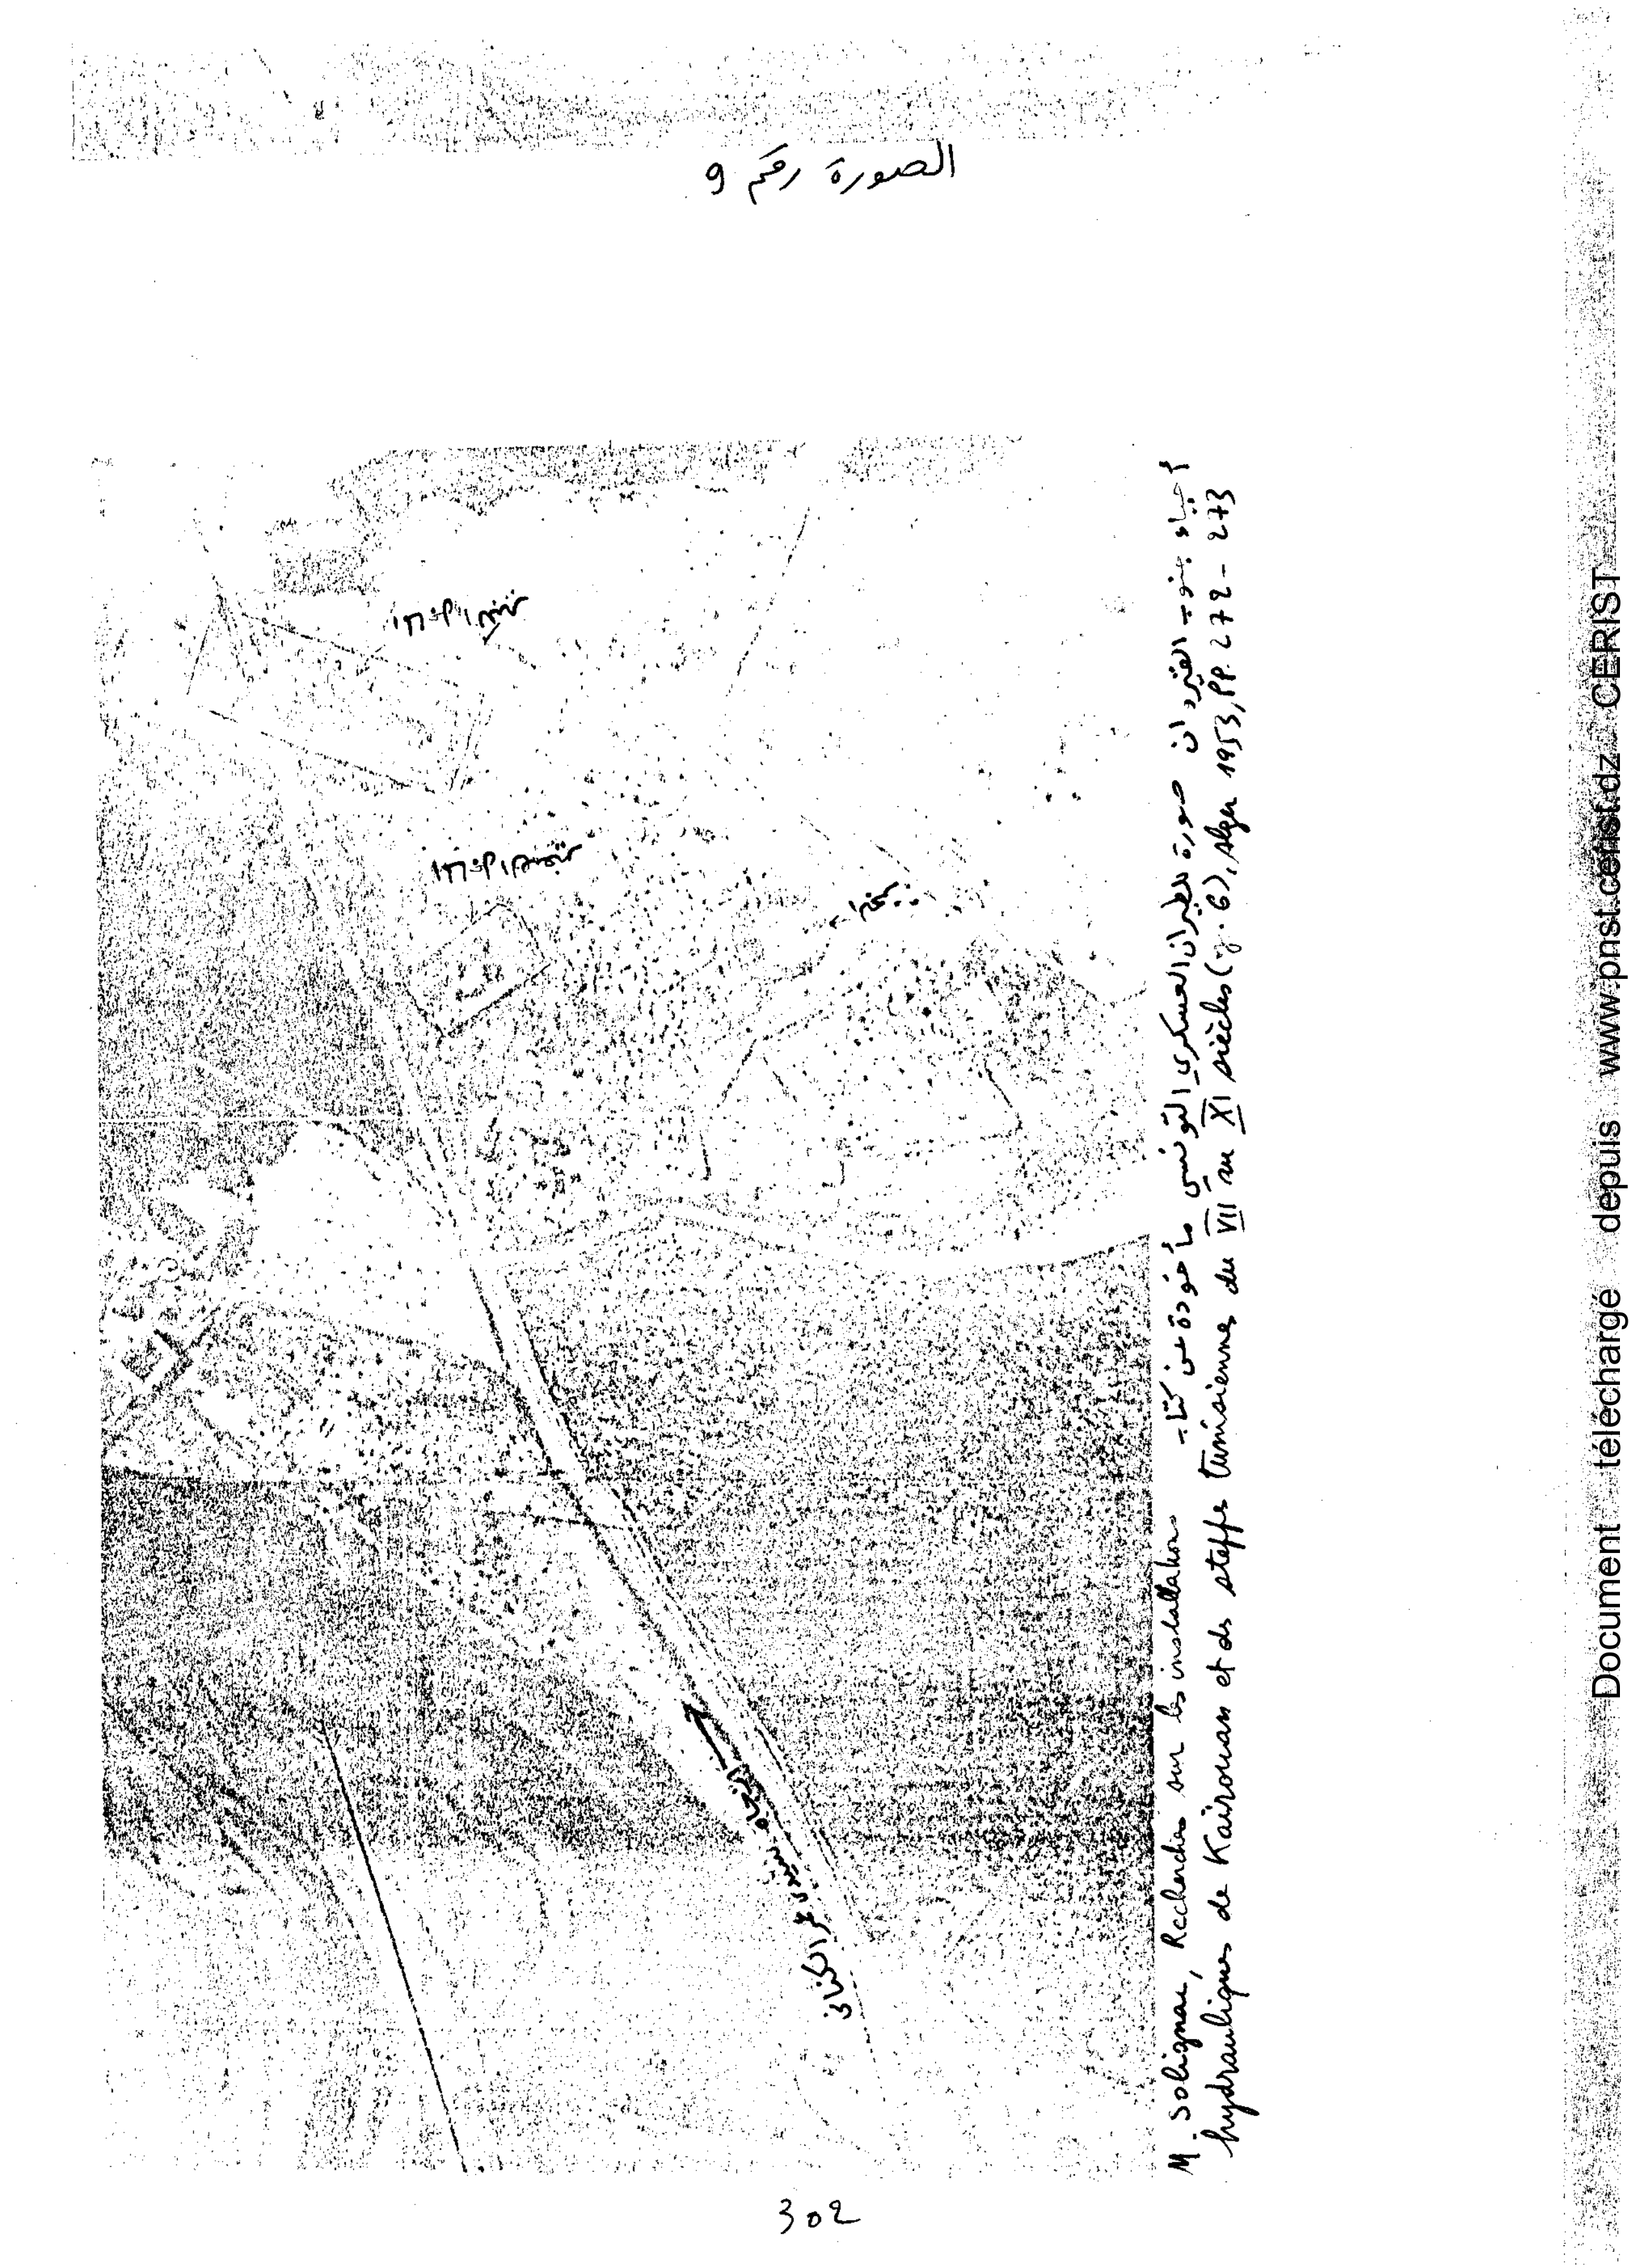 الصورة رقم 9
أحياء بنوب القيروان صورة للطيران العسكري التونسي مأخوذة عن كتاب
M. Solignac, Recherches sur les installations
hydrauliques de Kairouan et ds steppe tunisiennes du VII au XI siècles (J. 6), Alger 1953, PP. 272-273
اتجاه سيدي عمر الكناني
302
Document téléchargé depuis www.pnst.cerist.dz CERIST